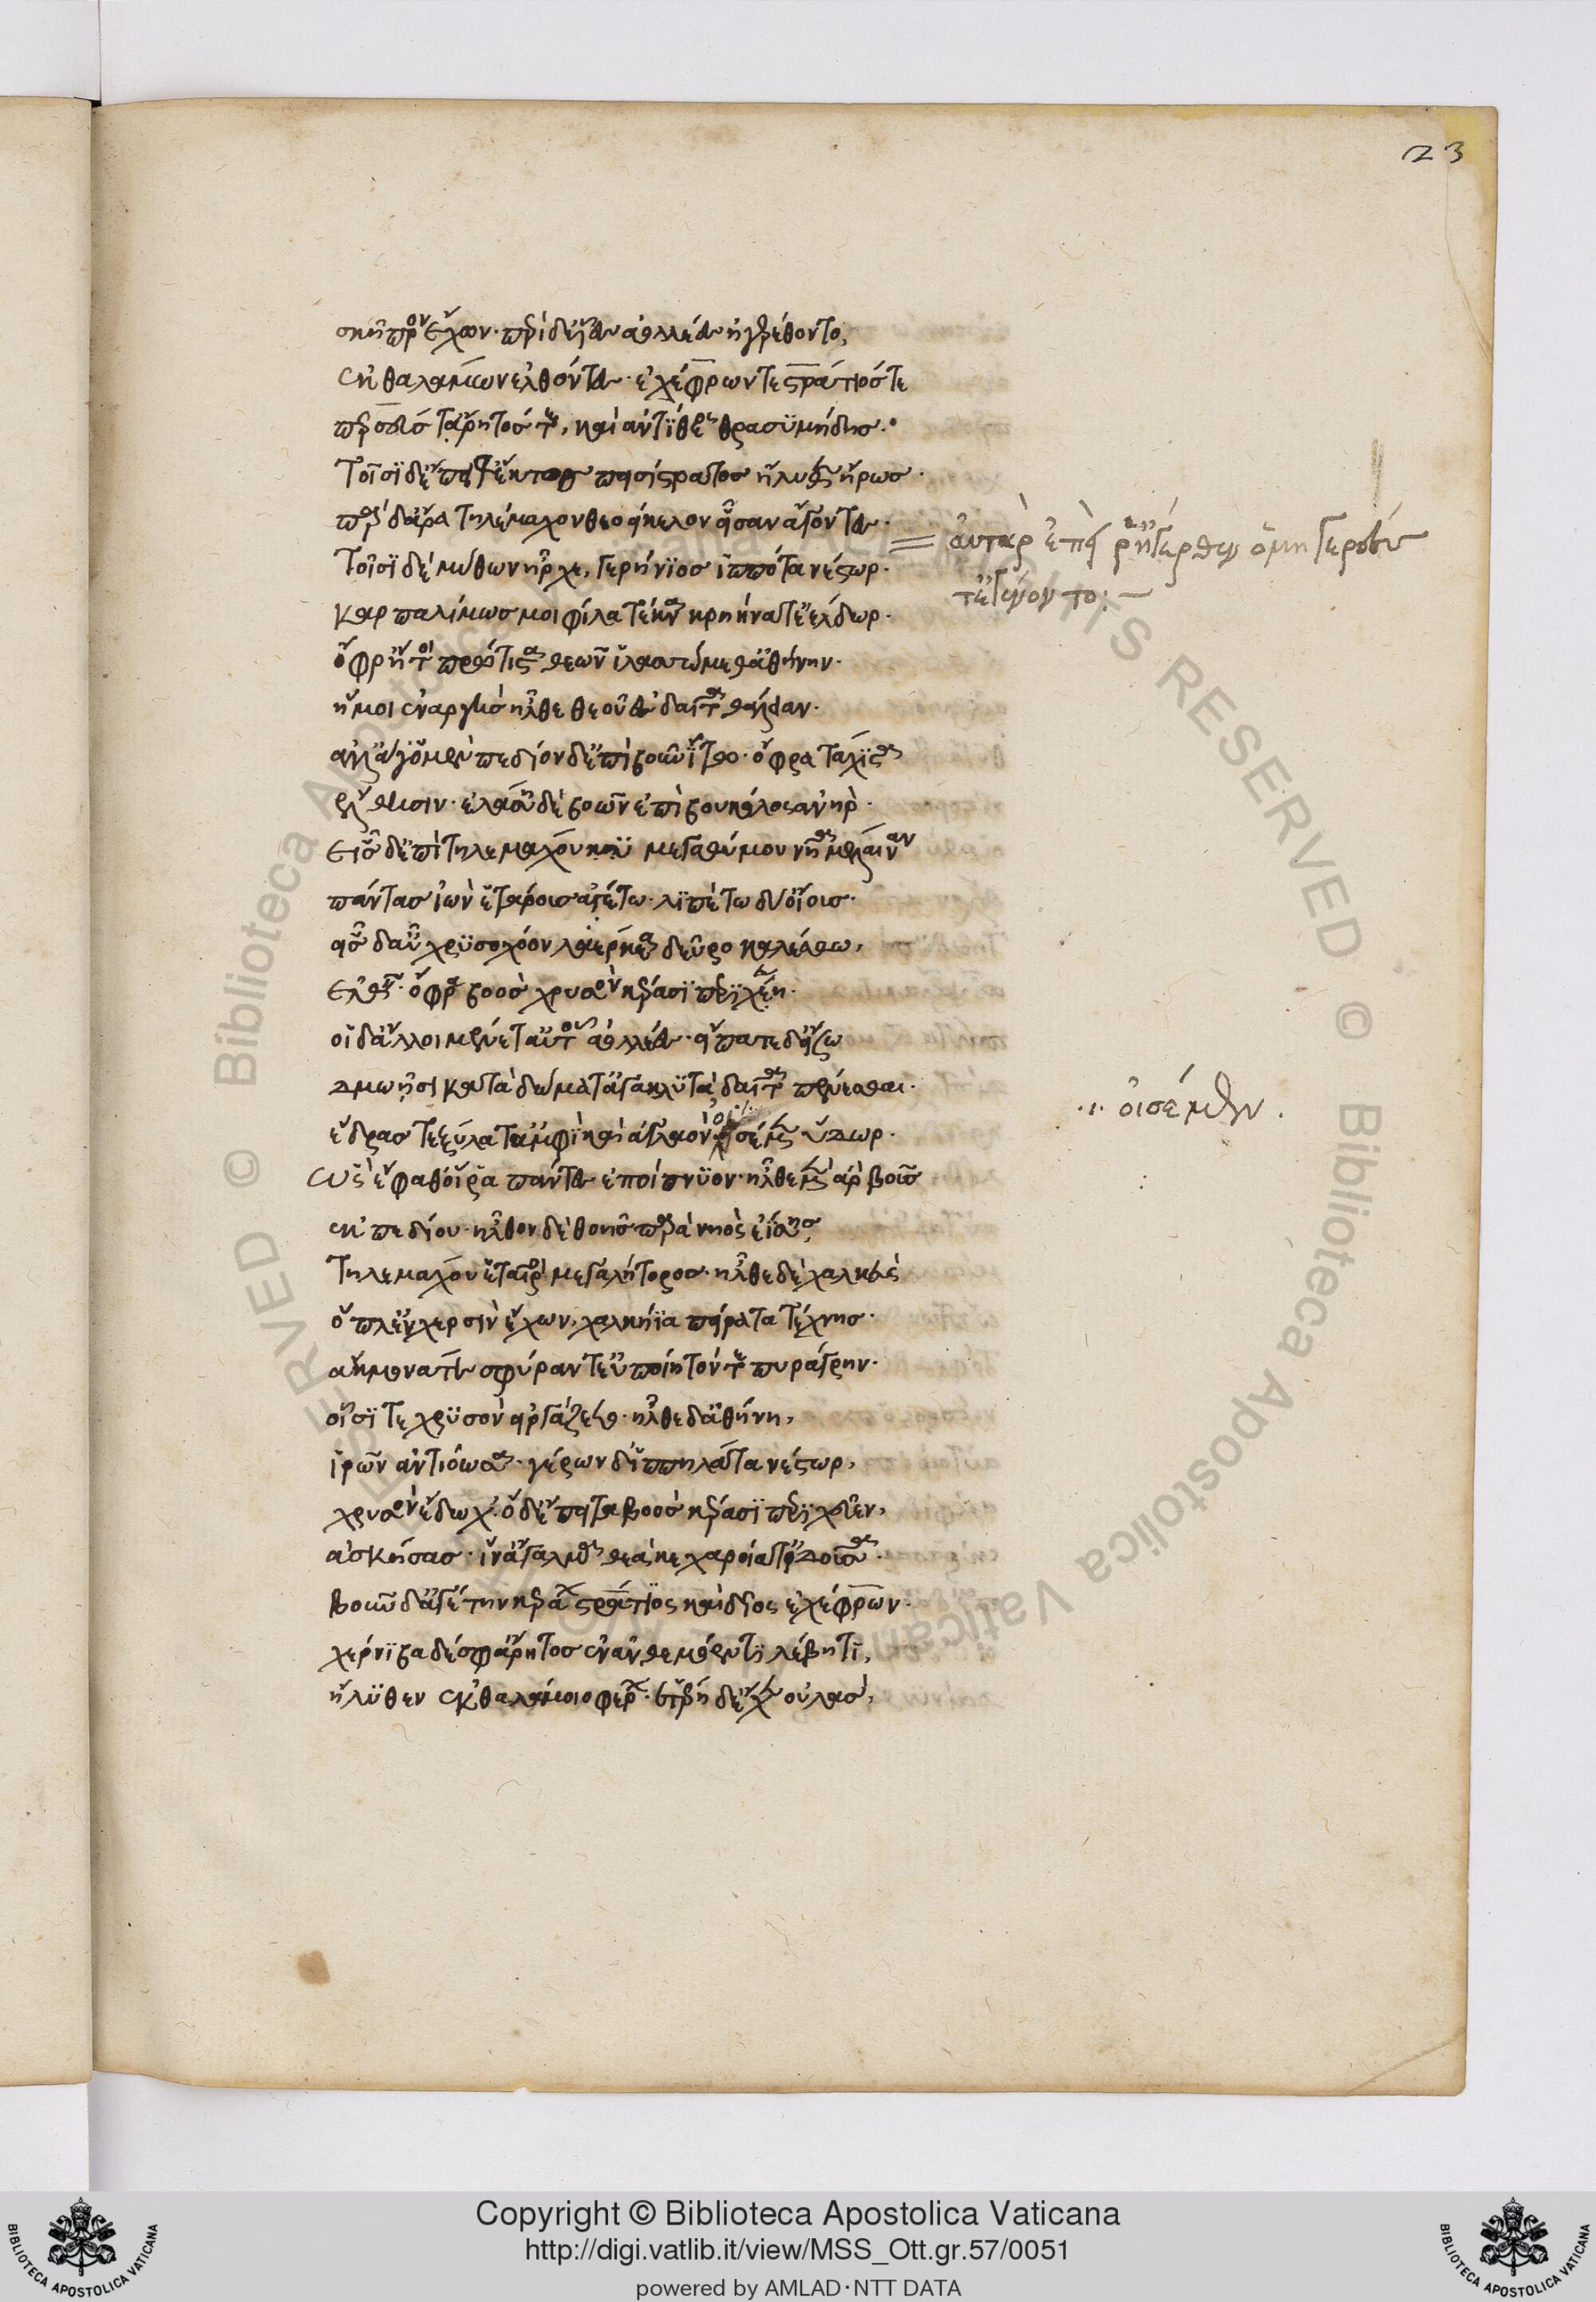 23
σκῆπτρον ἔχων· περὶ δ' υἷες ἀολλέες ἠγερέθοντο,
ἐκ θαλάμων ἐλθόντες· ἐχέφρων τε στράτιός τε
περσεύς τ' ἄρητός τε, καὶ ἀντίθεος θρασϋμήδης·
Τοῖσϊ δ' ἔπειθ' ἕκτος πεισίστρατος ἤλυθεν ἥρως·
πὰρ δ' ἄρα τηλέμαχον θεοείκελον εἷσαν ἄγοντες·
Τοῖσϊ δὲ μύθων ἦρχε, γερήνϊος ἱππότα νέστωρ·
καρπαλίμως μοι φίλα τέκνα κρηήνατ' ἐέλδωρ·
ὄφρ' ἤτοι πρώτιστα θεῶν ἱλασσώμεθ' ἀθήνην·
ἥ μοι ἐναργὴς ἦλθε θεοῦ ἐς δαῖτα θάλειαν·
ἀλλ' ἄγ' ὁ μὲν πεδίονδ' ἐπὶ βοῦν ἴτω· ὄφρα τάχϊστα
ἔλθησιν· ἐλάση δὲ βοῶν ἐπὶ βουκόλος ἀνήρ·
εἷς δ' ἐπὶ τηλεμάχου μεγαθύμου νῆα μέλαιναν
πάντας ἰὼν ἑτάρους ἀγέτω· λϊπέτω δύ' οἴους·
εἷς δ' αὖ χρϋσοχόον λαέρκεα δεῦρο καλέσθω,
ἐλθεῖν· ὄφρα βοὸς χρυσὸν κέρασϊ περϊχεύη·
οἱ δ' ἄλλοι μένετ' αὐτοῦ ἀολλέες· εἴπατε δ' εἴσω
δμωῆσι κατὰ δώματ' ἀγακλϋτὰ δαῖτα πένεσθαι·
ἕδρας τε ξύλα τ' ἀμφϊ καὶ ἀγλαὸν οἰσέμεν ὕδωρ·
ὣς ἔφαθ' οἵ ῥα πάντες ἐποίπνϋον· ἦλθε μὲν ἂρ βοῦς
ἐκ πεδίου· ἦλθον δὲ θοῆς παρὰ νηὸς ἐΐσης,
Τηλεμάχου ἕταιροι μεγαλήτορος· ἦλθε δὲ χαλκεὺς
ὅπλ' ἐν χερσὶν ἔχων, χαλκήϊα πείρατα τέχνης·
ἄκμονά τε σφύραν τ' εὐποίητόν τε πυράγρην·
οἷσϊ τε χρϋσὸν εἰργάζετο· ἦλθε δ' ἀθήνη,
ἱρῶν ἀντιόωσα· γέρων δ' ἱππηλάτα νέστωρ,
χρυσὸν ἔδωχ'· ὁ δ' ἔπειτα βοὸς κέρασϊ περϊχεῦεν,
ἀσκήσας· ἵν' ἄγαλμα θεὰ κεχάροιτο ἰδοῦσα·
βοῦν δ' ἀγέτην κεράων στράτϊος καὶ δῖος ἐχέφρων·
χέρνϊβα δέ σφ' ἄρητος ἐν ἀνθεμόεντϊ λέβητϊ,
ἤλϋθεν ἐκ θαλάμοιο φέρων· ἑτέρη δ' ἔχεν οὐλάς,
αὐτὰρ ἐπεί ῥ' ἤγερθεν ὁμηγερέες
τ' ἐγένοντο:
οἰσέμεν.
Copyright © Biblioteca Apostolica Vaticana
http://digi.vatlib.it/view/MSS_Ott.gr.57/0051
powered by AMLAD·NTT DATA
BIBLIOTECA APOSTOLICA VATICANA
BIBLIOTECA APOSTOLICA VATICANA